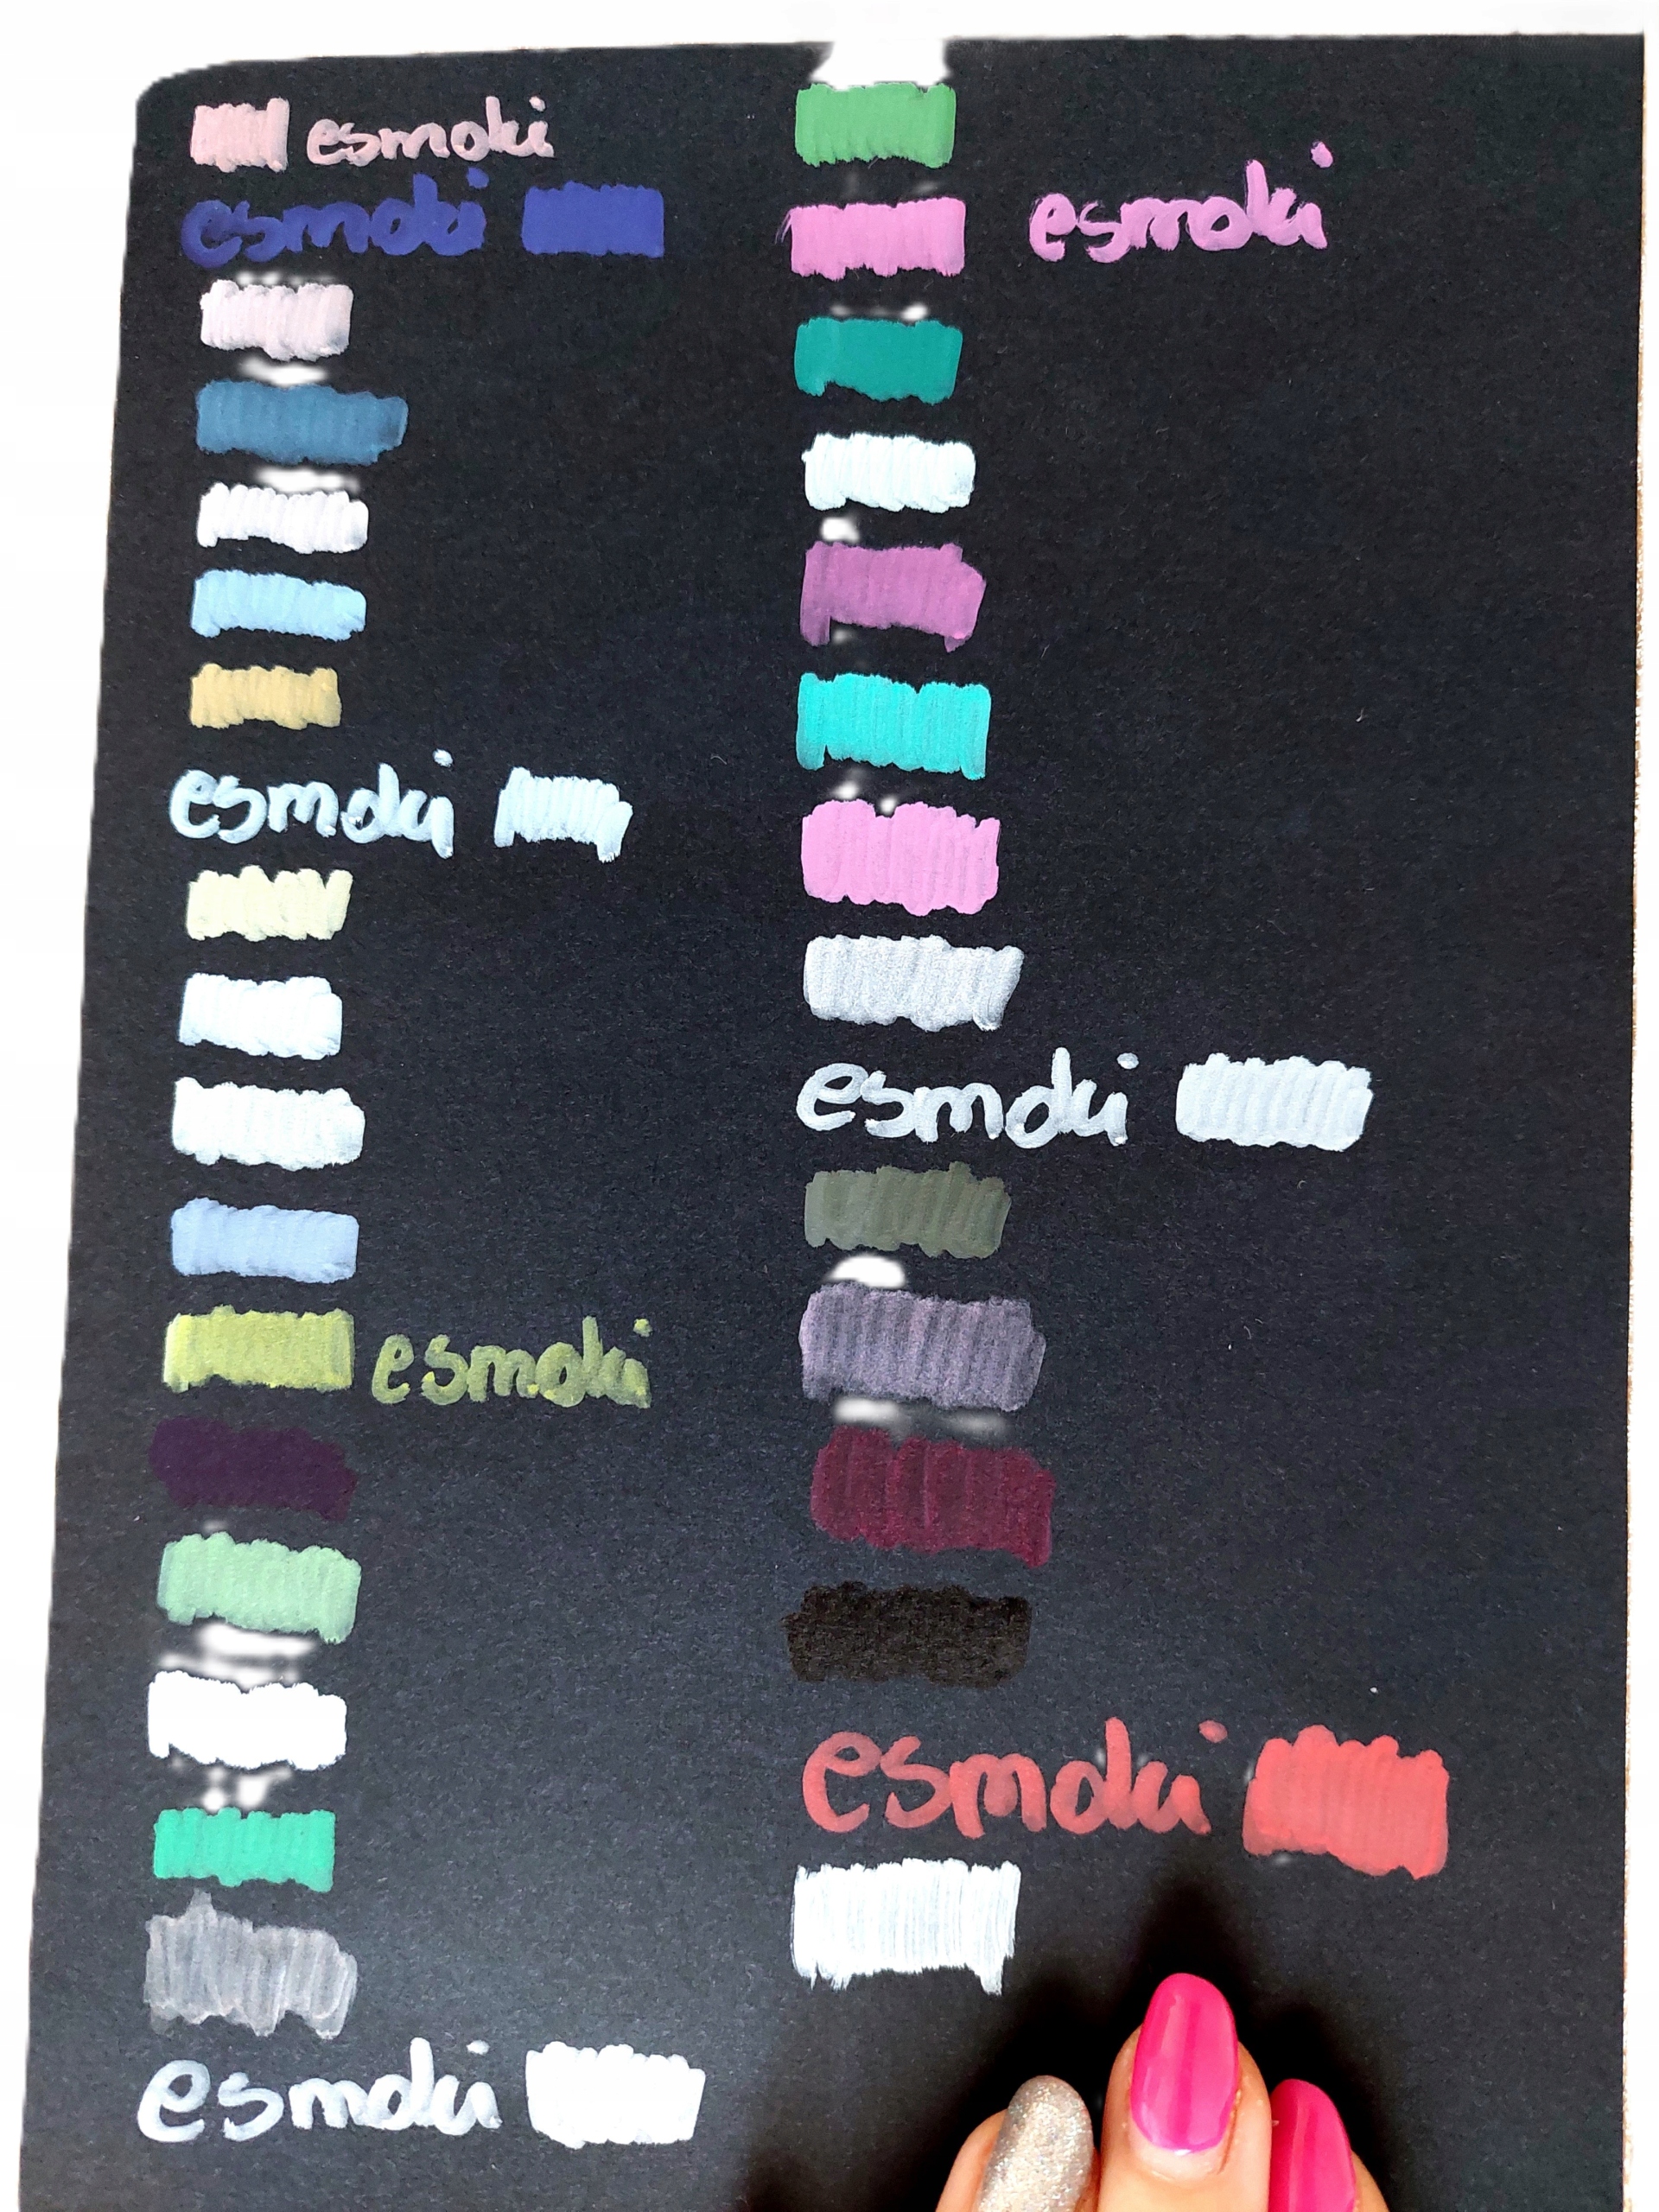 esmoki
esmoki
esmoki
esmoki
esmoki
esmoki
esmoki
esmoki